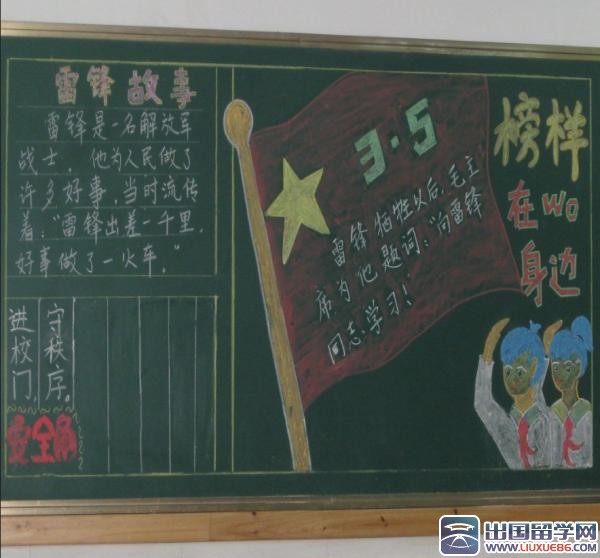 雷锋故事
雷锋是一名解放军
战士，他为人民做了
许多好事，当时流传
着：“雷锋出差一千里，
好事做了一火车。”
进校门，
守秩序。
安全角
3·5
雷锋牺牲以后，毛主
席为他题词：“向雷锋
同志学习！
榜样
在WO
身边
出国留学网
WWW.LIUXUE86.COM